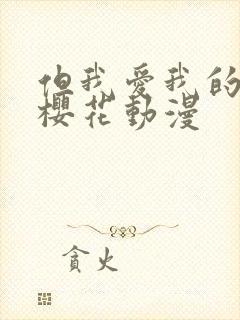 但我愛我的
櫻花動漫
貪火